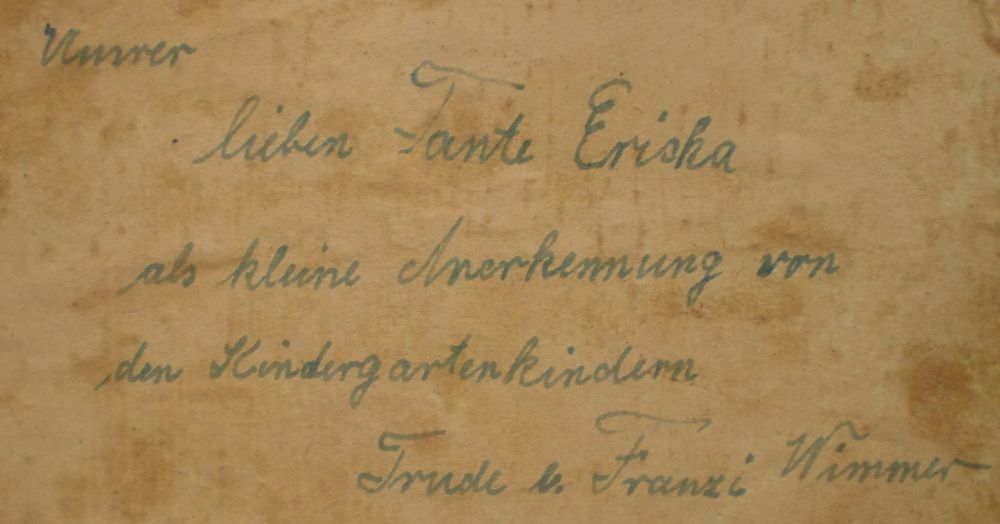 Unsrer
lieben Tante Eriska
als kleine Anerkennung von
den Kindergartenkindern
Trude u. Franzi Wimmer